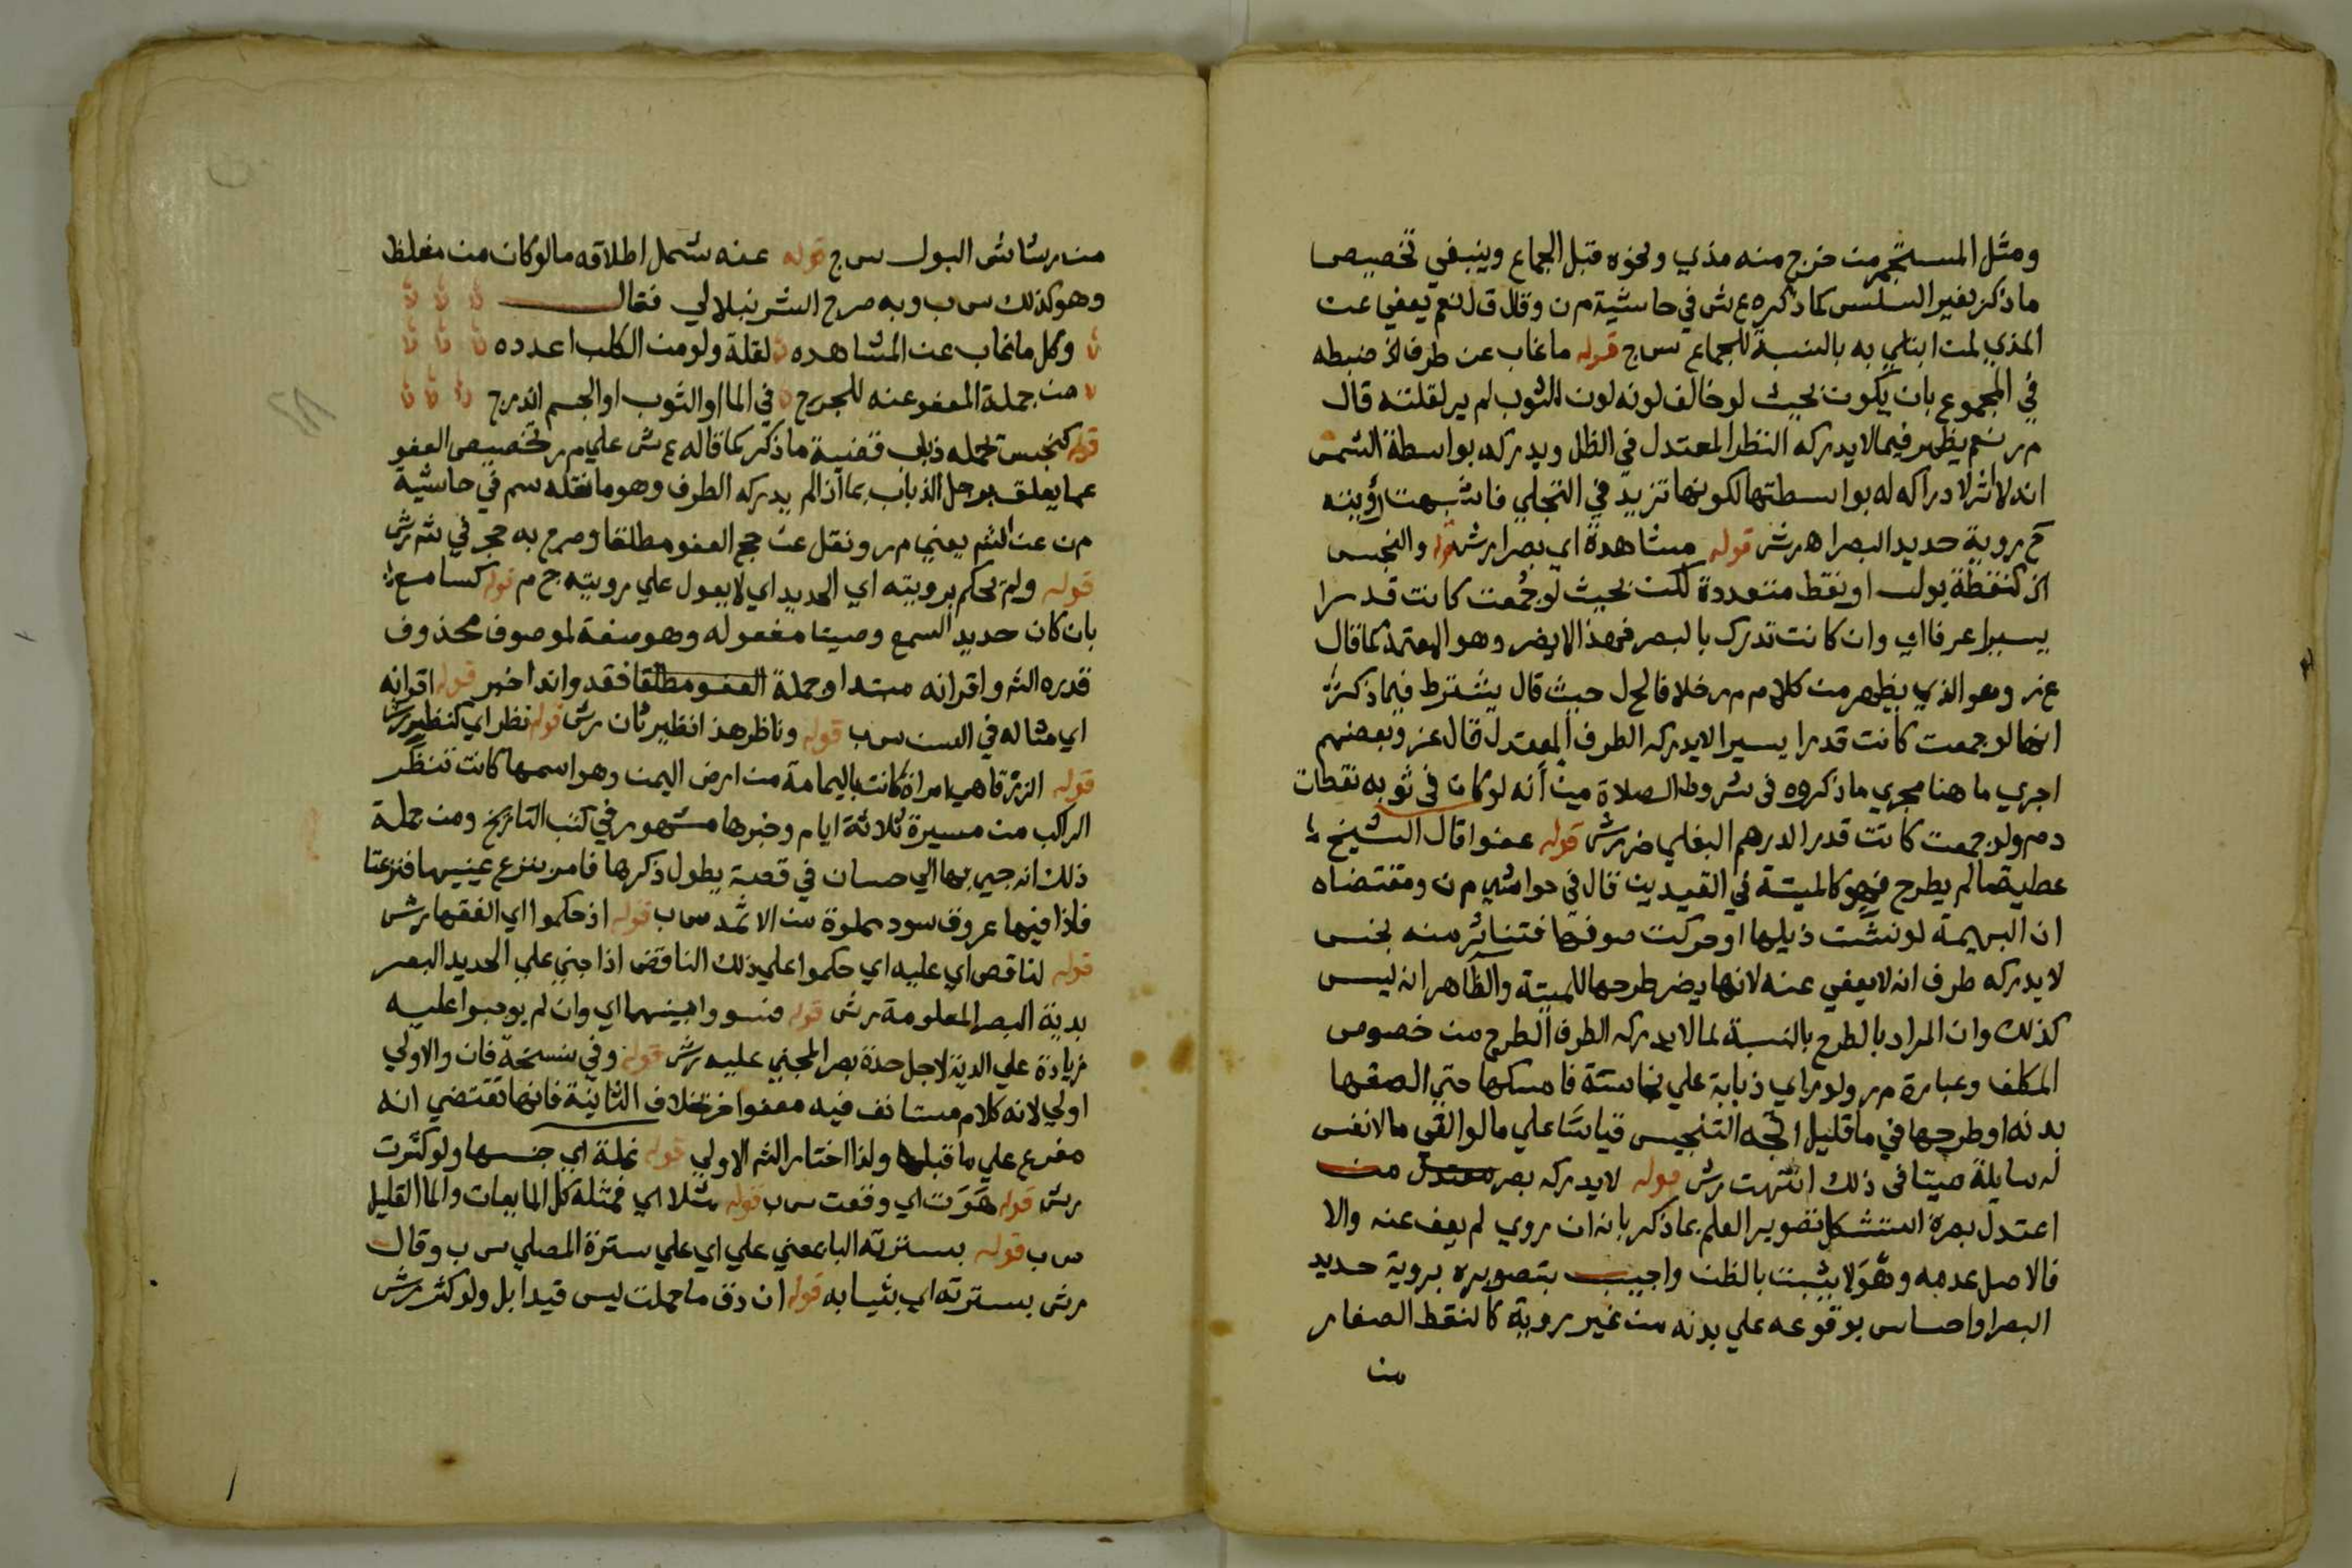 ومثل المستجمر من خرج منه مذي ونحوه قبل الجماع وينبغي تخصيص
ما ذكر بغير السلس كما ذكره ع ش في حاشية م ن وقال ق ل نعم يعفي عن
المذي لمن ابتلي به بالنسبة للجماع س ج قوله ما غاب عن طرف الخ ضبطه
في المجموع بان يكون بحيث لو خالف لونه لون الثوب لم ير لقلته قال
م ر نعم يظهر فيما لا يدركه النظر المعتدل في الظل ويدركه بواسطة الشمس
انه لا اثر لادراكه له بواسطتها لكونها تزيد في التجلي فاشبهت رؤيته
ح روية حديد البصر اهـ رش قوله مشاهدة اي بصر ا رش قوله والنجس
الخ كنقطة بول او نقط متعددة لكن بحيث لو جمعت كانت قدرا
يسيرا عرفا اي وان كانت تدرك بالبصر فهذا لا يضر وهو المعتمد كما قال
ع ز وهو الذي يظهر من كلام م ر خلافا لح ل حيث قال يشترط فيما ذكر
انها لو جمعت كانت قدرا يسيرا لا يدركه الطرف المعتدل قال عز وبعضهم
اجري ما هنا مجري ما ذكروه في شروط الصلاة من أنه لو كان في ثوبه نقطات
دم ولو جمعت كانت قدر الدرهم البغلي ضر رش قوله عفوا قال الشيخ
عطية ما لم يطرح فهو كالميتة في القيدين قال في حواشي م ن ومقتضاه
ان البهيمة لو نشت ذيلها او حركت صوفها فتناثر منه نجس
لا يدركه طرف انه لا يعفي عنه لانها يضر طرحها للميتة والظاهر انه ليس
كذلك وان المراد بالطرح بالنسبة لما لا يدركه الطرف الطرح من خصوص
المكلف وعبارة م ر ولو راي ذبابة علي نجاسة فامسكها حتي الصقها
بدنه او طرحها في ما قليل اتجه التنجيس قياسا علي ما لو القي ما لا نفس
له سايلة ميتا في ذلك انتهت رش قوله لا يدركه بصر معتدل من
اعتدل بصره استشكل تصوير العلم بما ذكر بانه ان روي لم يعف عنه والا
فالاصل عدمه وهو لا يثبت بالظن واجيب بتصويره بروية حديد
البصر او احساس بوقوعه علي بدنه من غير روية كالنقط الصغار
من
من رشاش البول س ج قوله عنه شمل اطلاقه ما لو كان من مغلظ
وهو كذلك س ب وبه صرح الشرنبلالي فقال
وكل ما غاب عن المشاهده لقلة ولو من الكلب اعدده
من جملة المعفو عنه للحرج في الما او الثوب او الجسم اندرج
قوله كنجس تحمله ذباب قضية ما ذكر كما قاله ع ش علي م ر تخصيص العفو
عما يعلق برجل الذباب بما اذا لم يدركه الطرف وهو ما نقله سم في حاشية
م ن عن الشم يعني م ر ونقل عن حج العفو مطلقا وصرح به حجر في شم رش
قوله ولم يحكم برويته اي الحديد اي لا يعول علي رويته ح م قوله كسامع
بان كان حديد السمع وصيتا مفعوله وهو صفة لموصوف محذوف
قدره الشر واقرانه مبتدا وجملة العفو مطلقا فقدوا ندا خبر قوله اقرانه
اي مثاله في السن س ب قوله وناظر هذا نظير ثان رش قوله نظر اي كنظير رش
قوله الزرقا هي امراة كانت باليمامة من ارض اليمن وهو اسمها كانت تنظر
الراكب من مسيرة ثلاثة ايام وخبرها مشهور في كتب التاريخ ومن جملة
ذلك انه جيي بها الي حسان في قصة يطول ذكرها فامر بنزع عينيها فنزعتا
فاذا فيها عروق سود مملوة من الاثمد س ب قوله اذ حكموا اي الفقها رش
قوله لناقص اي عليه اي حكموا علي ذلك الناقض اذا جني علي الحديد البصر
بدية البصر المعلومة رش قوله فسووا بينهما اي وان لم يوجبوا عليه
زيادة علي الدية لاجل حدة بصر المجني عليه رش قوله وفي نسخة فان والاولي
اولي لانه كلام مستانف فيه معفوا خر بخلاف الثانية فانها تقتضي انه
مفرع علي ما قبلها ولذا اختار الشر الاولي قوله نملة اي جنسها ولو كثرت
رش قوله هوت اي وقعت س ب قوله مثلا اي فمثله كل المايعات والما القليل
س ب قوله بسترته البا بمعني علي اي علي سترة المصلي س ب وقال
رش بسترته اي بثيابه قوله ان دق ما حملت ليس قيدا بل ولو كثر رش